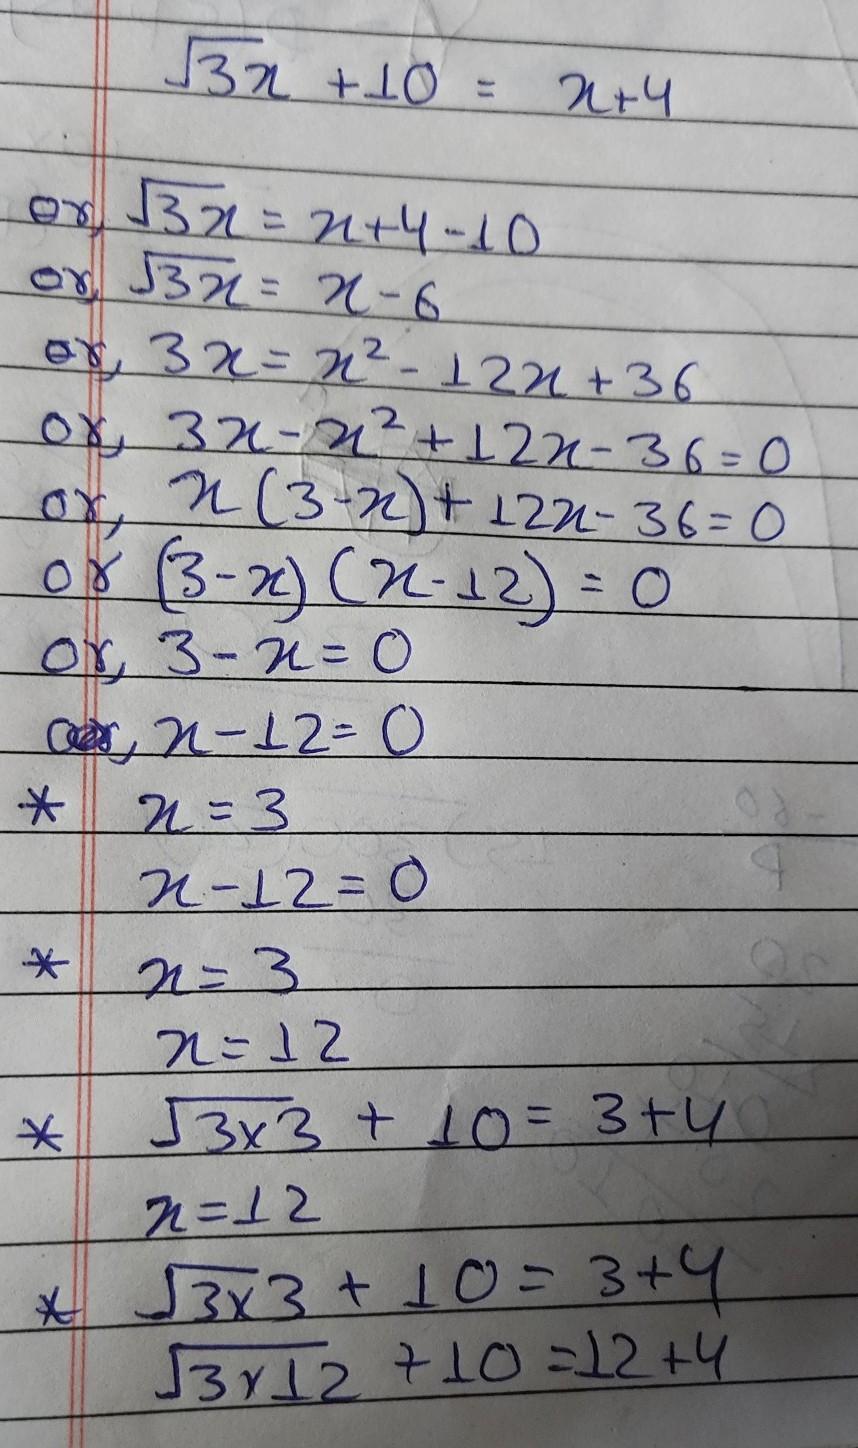 √3x + 10 = x+4
or, √3x = x+4-10
or, √3x = x-6
or, 3x = x² - 12x + 36
or, 3x - x² + 12x - 36 = 0
or, x(3-x) + 12x - 36 = 0
or (3-x) (x-12) = 0
or, 3-x = 0
or, x-12 = 0
* x = 3
x-12 = 0
* x = 3
x = 12
* √3×3 + 10 = 3+4
x = 12
* √3×3 + 10 = 3+4
√3×12 + 10 = 12+4